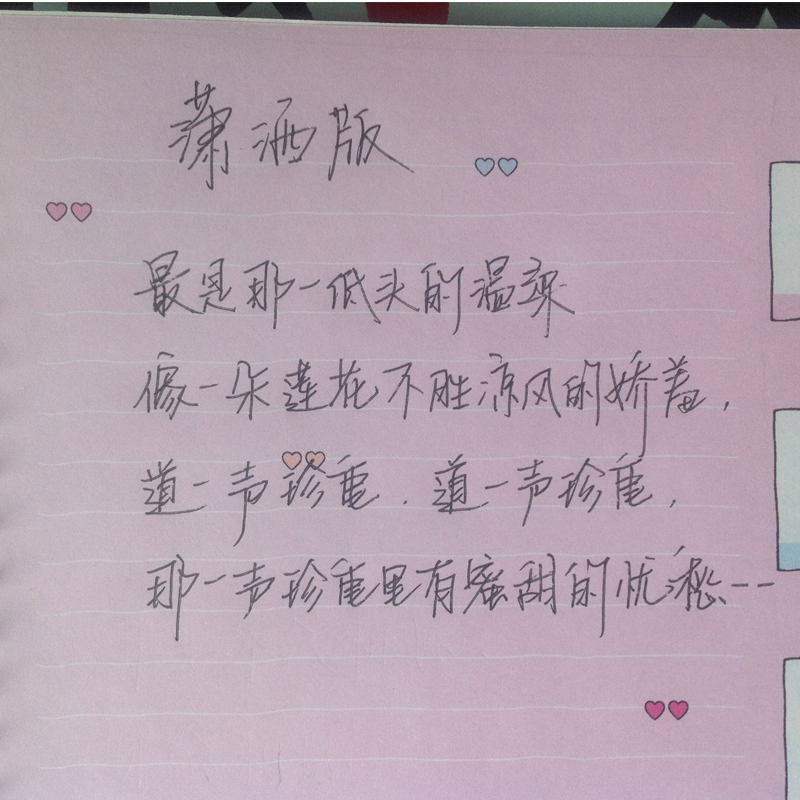 潇洒版
最是那一低头的温柔
像一朵莲花不胜凉风的娇羞，
道一声珍重．道一声珍重，
那一声珍重里有蜜甜的忧愁--